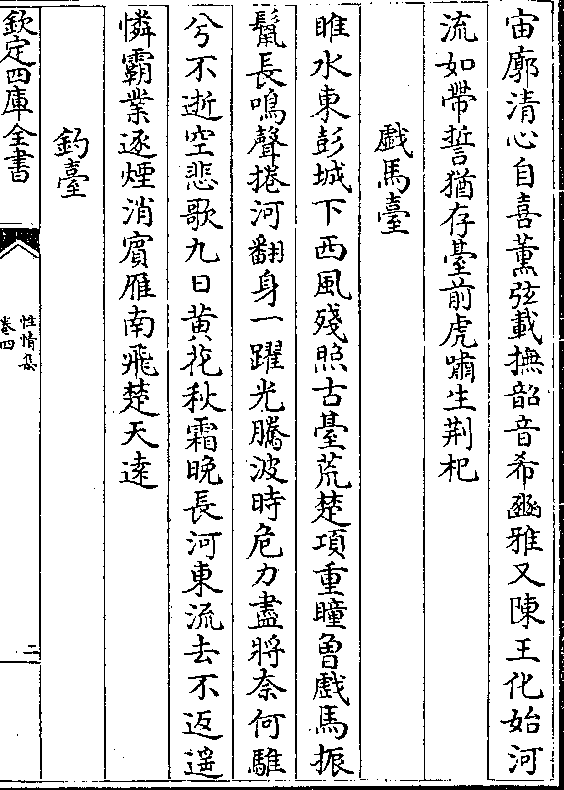 宙廓清心自喜薰弦載撫韶音希豳雅又陳王化始河
流如帶誓猶存臺前虎嘯生荆杞
戲馬臺
睢水東彭城下西風殘照古臺荒楚項重瞳曽戲馬振
鬛長鳴聲捲河翻身一躍光騰波時危力盡將奈何騅
兮不逝空悲歌九日黄花秋霜晩長河東流去不返遥
憐霸業逐煙消賓雁南飛楚天逺
釣臺
欽定四庫全書
性情集
卷四
二